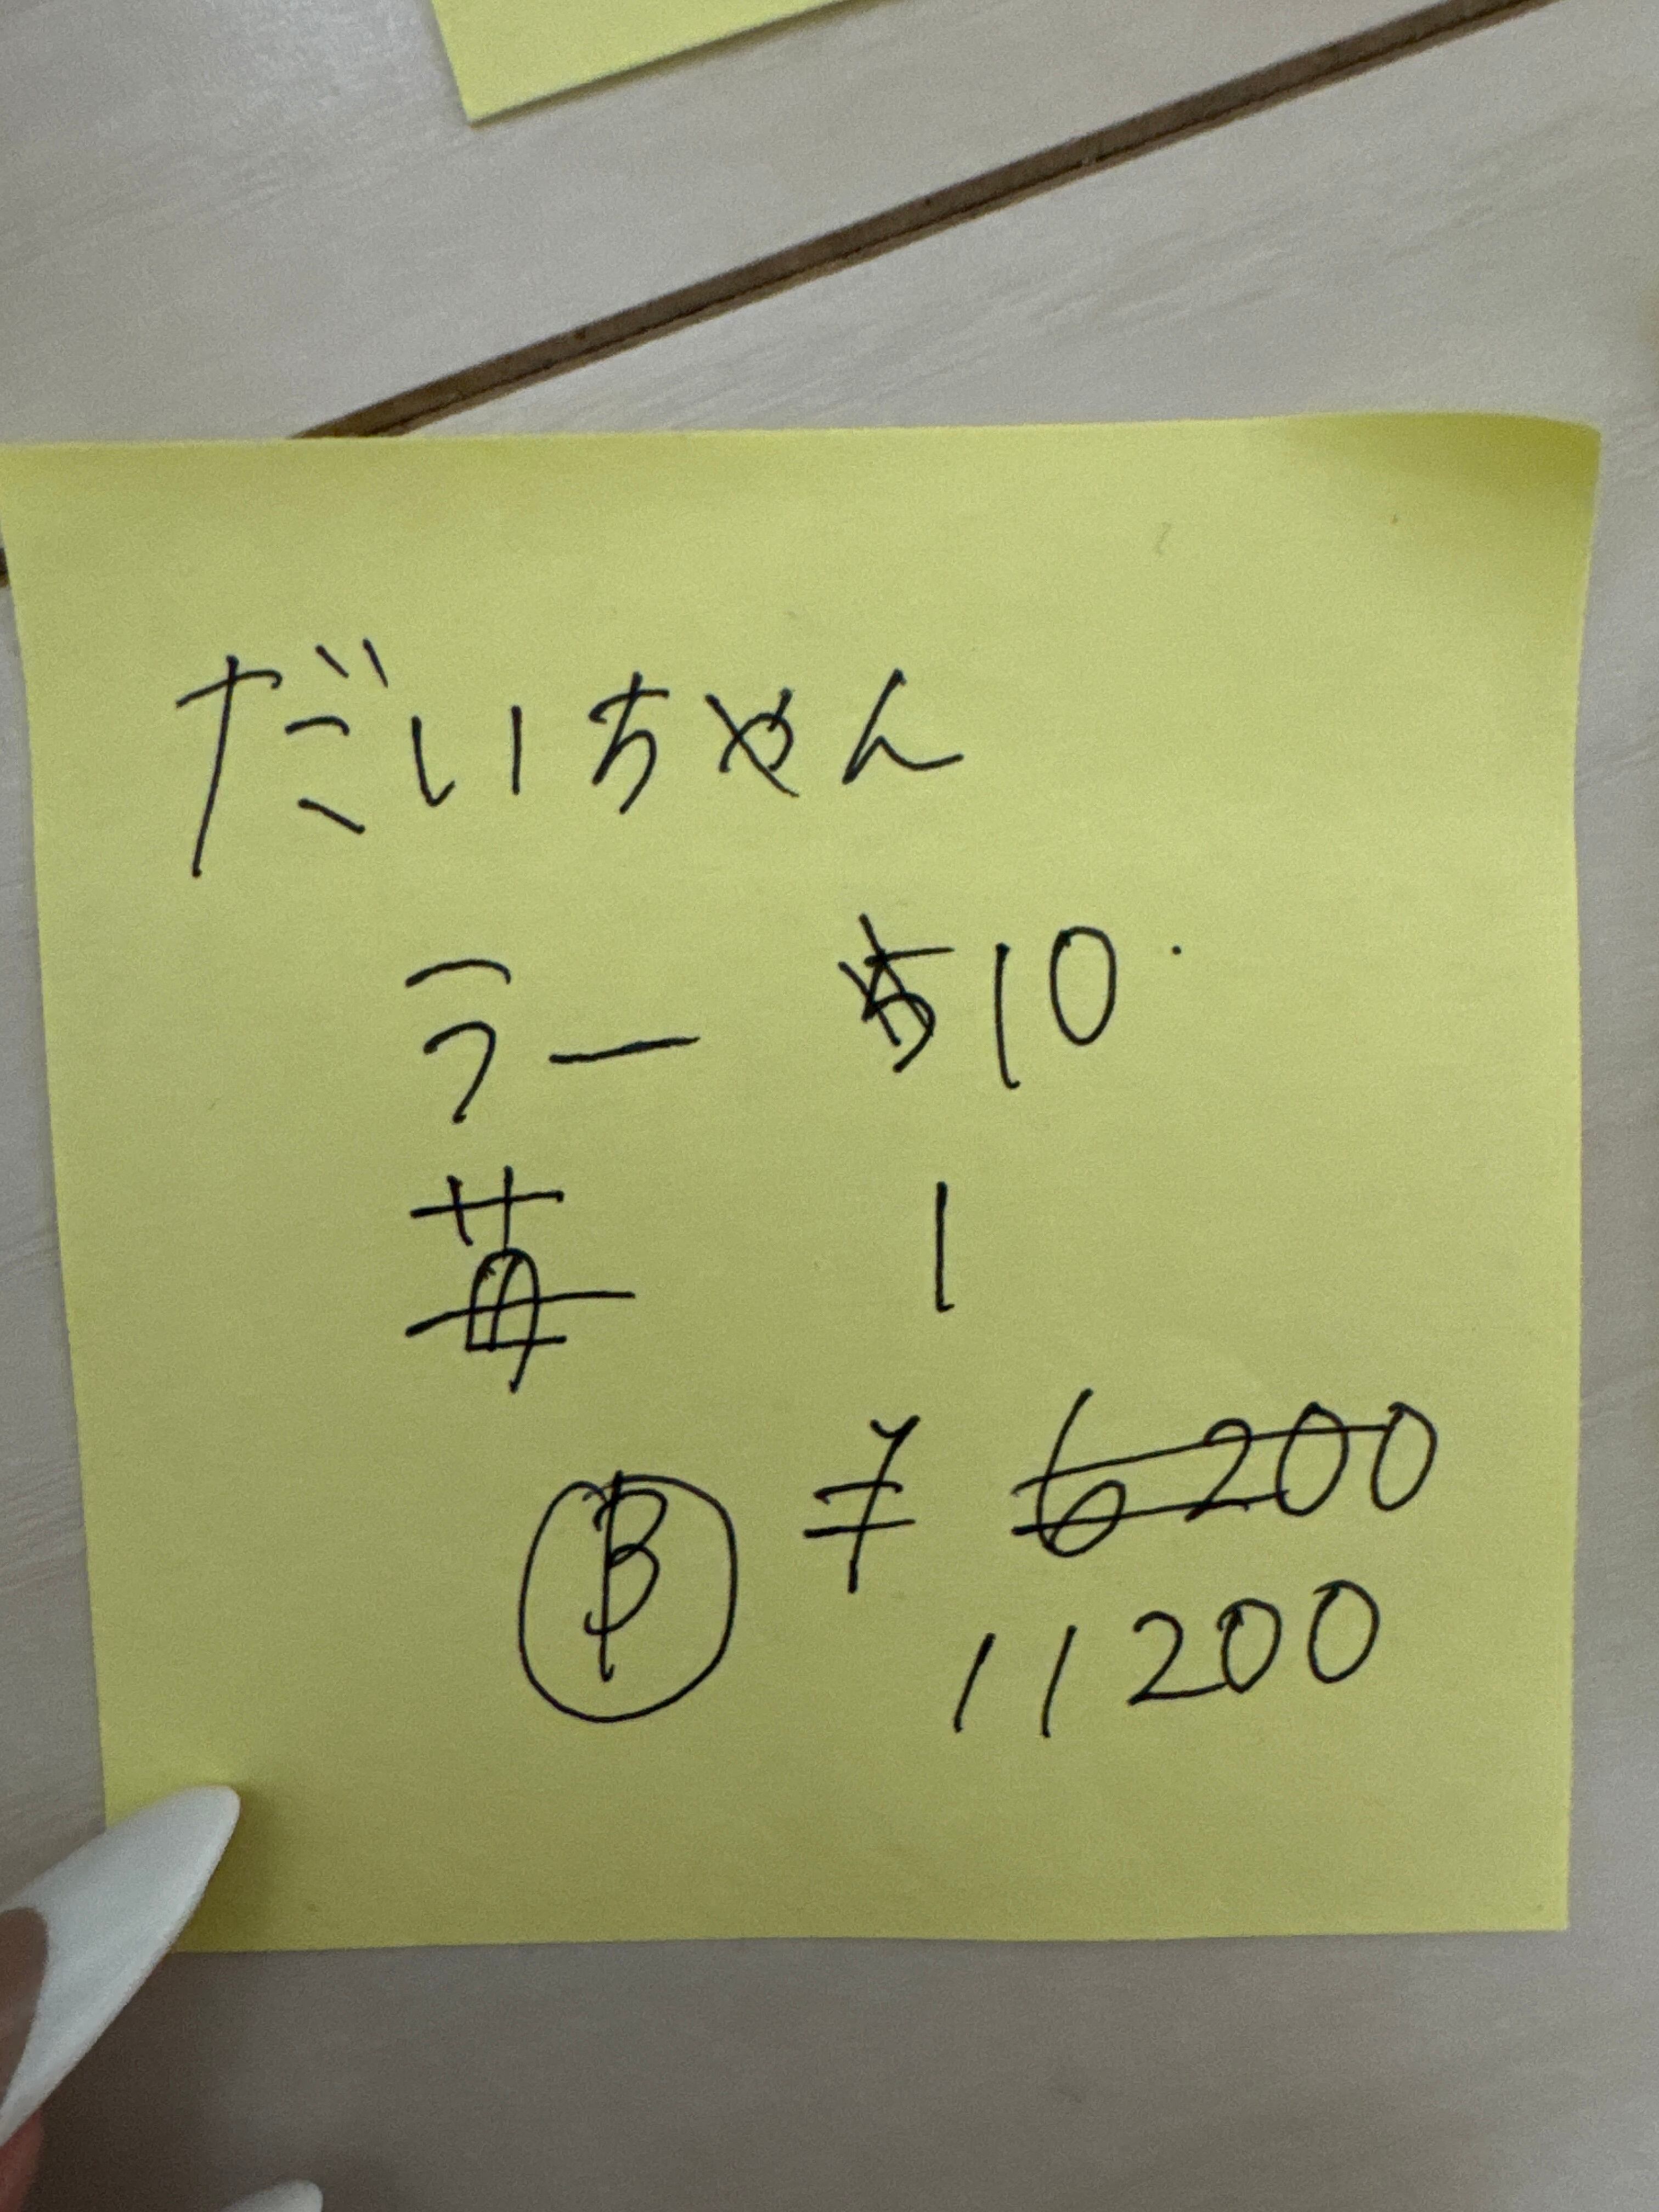 だいちゃん
ラー 5 10
苺 1
Ⓑ ¥ 6200
11200